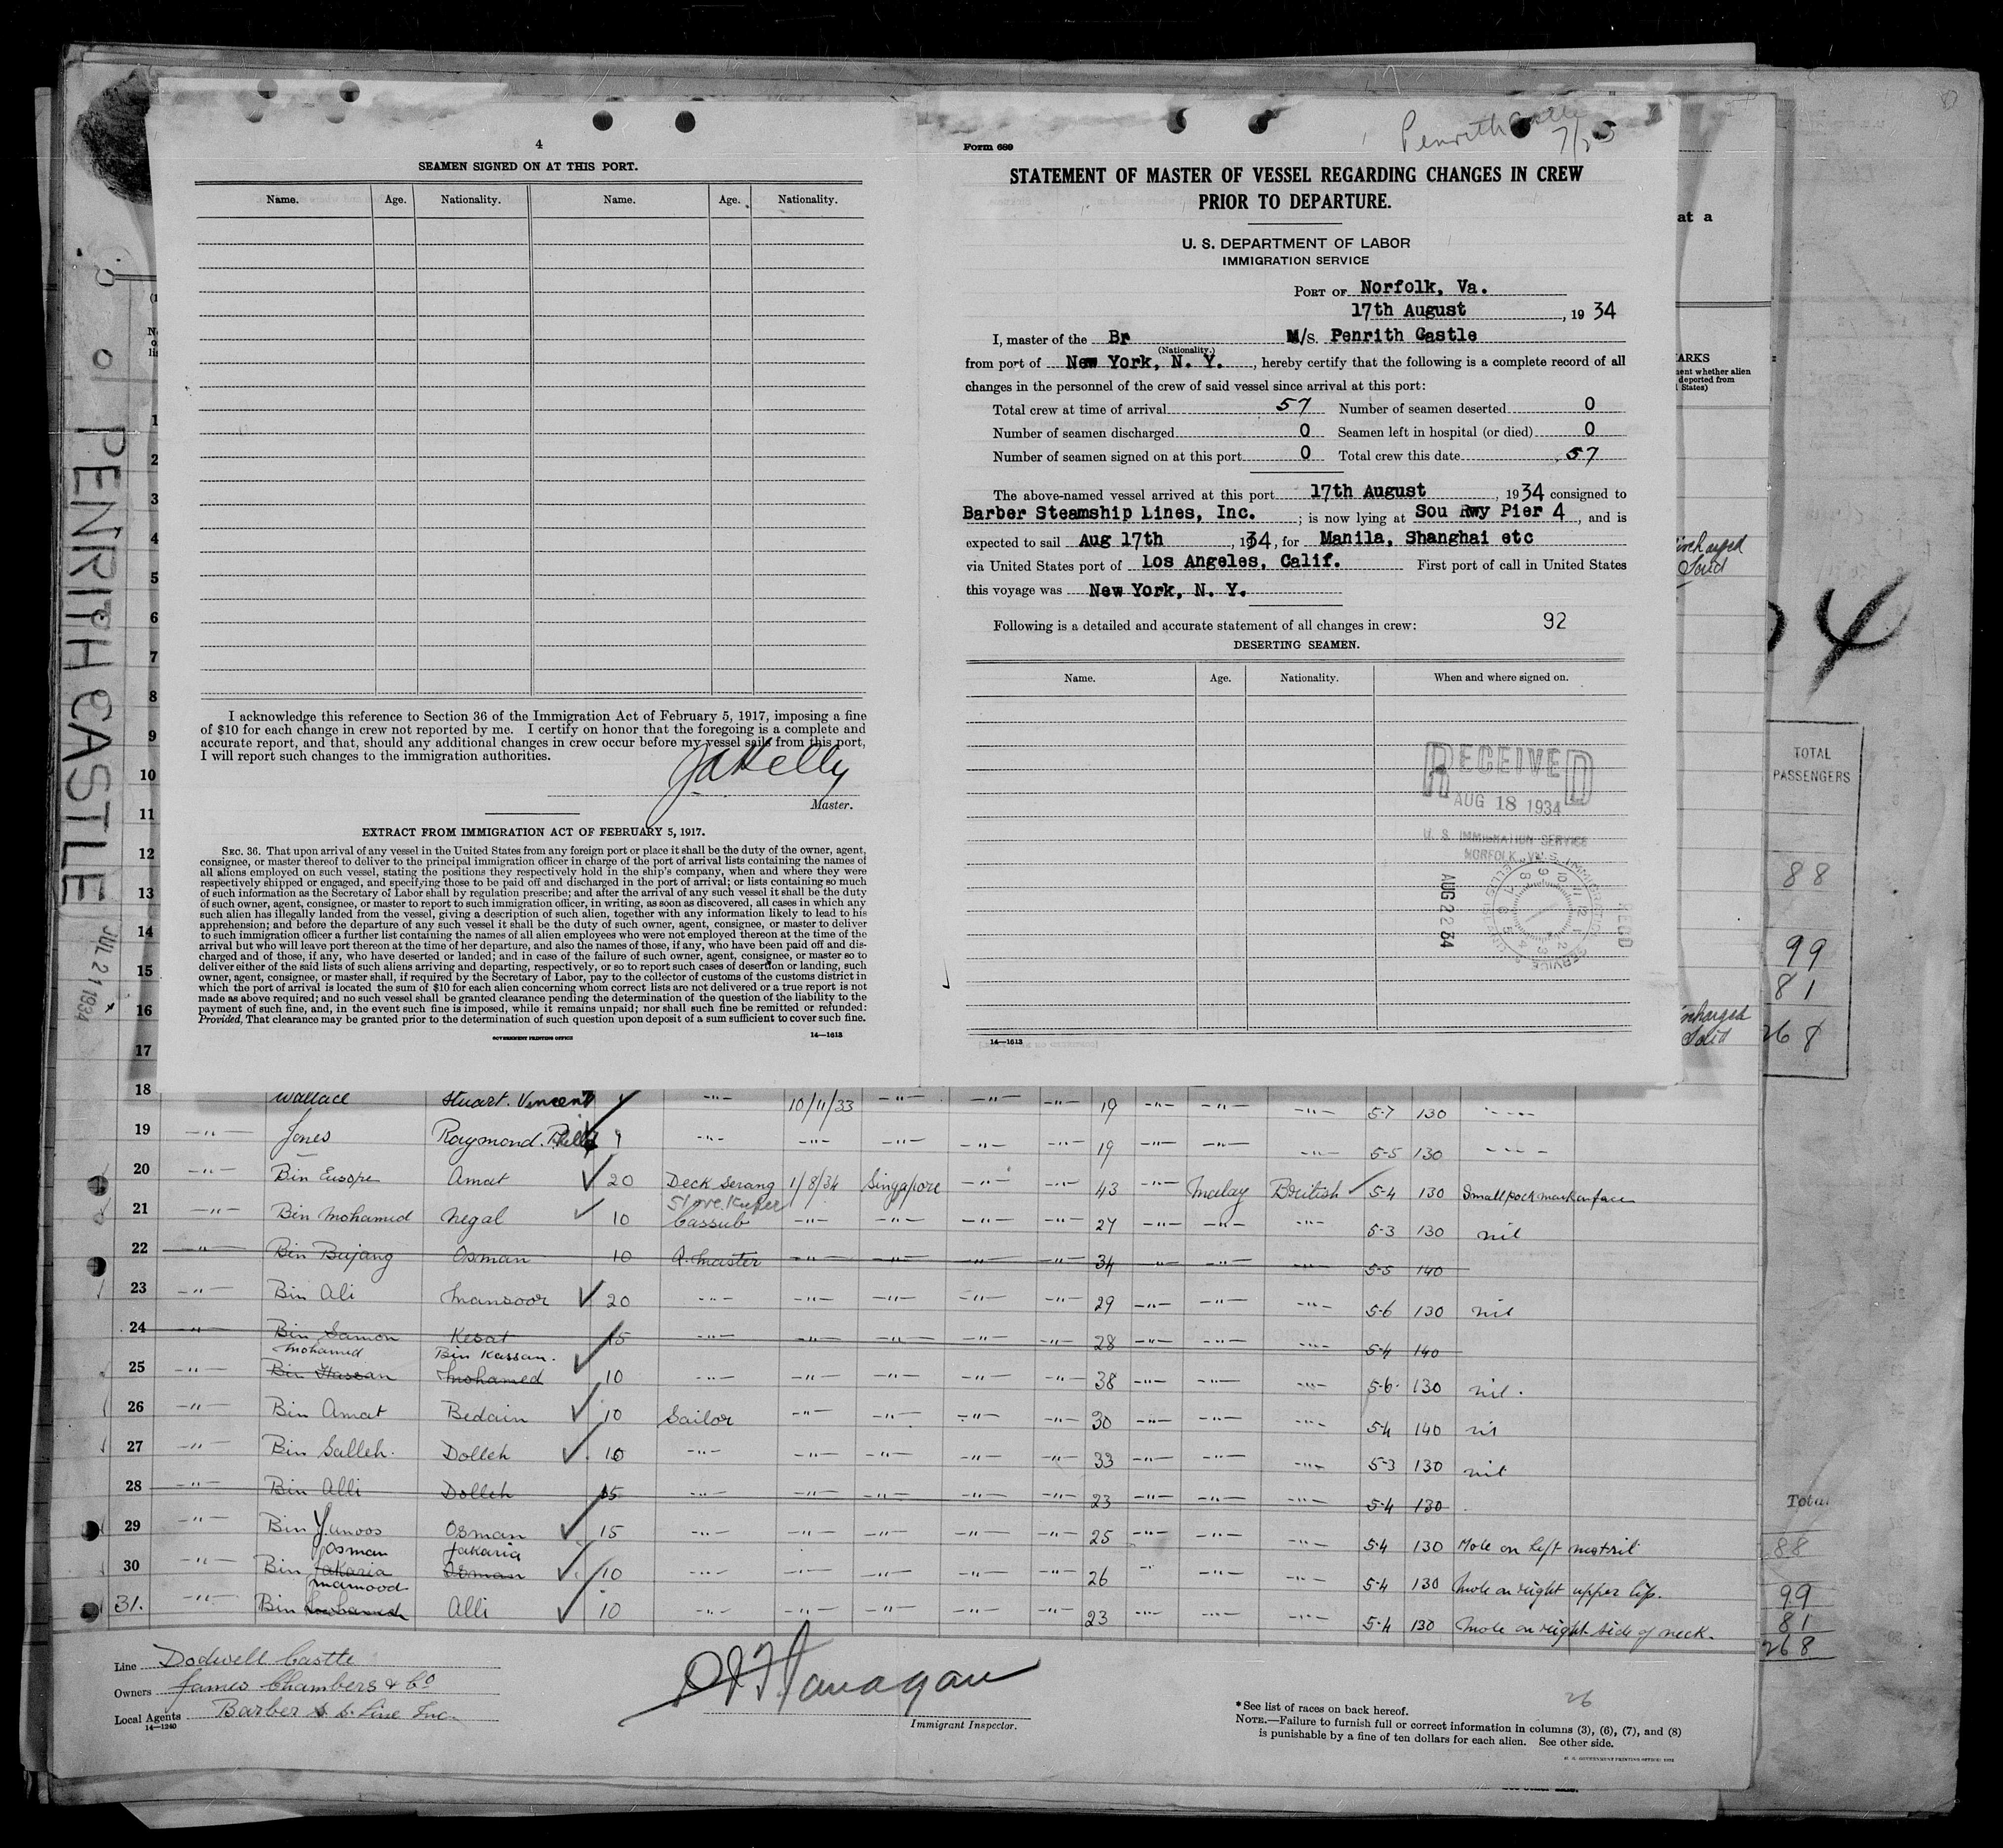 4
SEAMEN SIGNED ON AT THIS PORT.
Name. Age. Nationality. Name. Age. Nationality.
I acknowledge this reference to Section 36 of the Immigration Act of February 5, 1917, imposing a fine
of $10 for each change in crew not reported by me. I certify on honor that the foregoing is a complete and
accurate report, and that, should any additional changes in crew occur before my vessel sails from this port,
I will report such changes to the immigration authorities.
JAKelly
Master.
EXTRACT FROM IMMIGRATION ACT OF FEBRUARY 5, 1917.
SEC. 36. That upon arrival of any vessel in the United States from any foreign port or place it shall be the duty of the owner, agent,
consignee, or master thereof to deliver to the principal immigration officer in charge of the port of arrival lists containing the names of
all aliens employed on such vessel, stating the positions they respectively hold in the ship's company, when and where they were
respectively shipped or engaged, and specifying those to be paid off and discharged in the port of arrival; or lists containing so much
of such information as the Secretary of Labor shall by regulation prescribe; and after the arrival of any such vessel it shall be the duty
of such owner, agent, consignee, or master to report to such immigration officer, in writing, as soon as discovered, all cases in which any
such alien has illegally landed from the vessel, giving a description of such alien, together with any information likely to lead to his
apprehension; and before the departure of any such vessel it shall be the duty of such owner, agent, consignee, or master to deliver
to such immigration officer a further list containing the names of all alien employees who were not employed thereon at the time of the
arrival but who will leave port thereon at the time of her departure, and also the names of those, if any, who have been paid off and dis-
charged and of those, if any, who have deserted or landed; and in case of the failure of such owner, agent, consignee, or master so to
deliver either of the said lists of such aliens arriving and departing, respectively, or so to report such cases of desertion or landing, such
owner, agent, consignee, or master shall, if required by the Secretary of Labor, pay to the collector of customs of the customs district in
which the port of arrival is located the sum of $10 for each alien concerning whom correct lists are not delivered or a true report is not
made as above required; and no such vessel shall be granted clearance pending the determination of the question of the liability to the
payment of such fine, and, in the event such fine is imposed, while it remains unpaid; nor shall such fine be remitted or refunded:
Provided, That clearance may be granted prior to the determination of such question upon deposit of a sum sufficient to cover such fine.
GOVERNMENT PRINTING OFFICE 14—1613
Form 689
Penrith Castle
STATEMENT OF MASTER OF VESSEL REGARDING CHANGES IN CREW
PRIOR TO DEPARTURE.
U. S. DEPARTMENT OF LABOR
IMMIGRATION SERVICE
PORT OF Norfolk, Va.
17th August, 1934
I, master of the Br M/S. Penrith Castle
(Nationality.)
from port of New York, N. Y., hereby certify that the following is a complete record of all
changes in the personnel of the crew of said vessel since arrival at this port:
Total crew at time of arrival 57 Number of seamen deserted 0
Number of seamen discharged 0 Seamen left in hospital (or died) 0
Number of seamen signed on at this port 0 Total crew this date 57
The above-named vessel arrived at this port 17th August, 1934 consigned to
Barber Steamship Lines, Inc.; is now lying at Sou Rwy Pier 4, and is
expected to sail Aug 17th, 1934, for Manila, Shanghai etc
via United States port of Los Angeles, Calif. First port of call in United States
this voyage was New York, N. Y.
Following is a detailed and accurate statement of all changes in crew: 92
DESERTING SEAMEN.
Name. Age. Nationality. When and where signed on.
RECEIVED
AUG 18 1934
U. S. IMMIGRATION SERVICE
NORFOLK, VA.
AUG 22 34
REC'D
14—1613
PENRITH CASTLE
JUL 21 1934
at a
TOTAL
PASSENGERS
88
99
81
268
1
2
3
4
5
6
7
8
9
10
11
12
13
14
15
16
17
18 Wallace Stuart. Vincent -"- 10/11/33 -"- -"- -"- 19 -"- -"- -"- 5-7 130 -"-
19 -"- Jones Raymond. -"- -"- -"- -"- -"- 19 -"- -"- -"- 5-5 130 -"-
20 -"- Bin Eusope Amat 20 Deck Serang 1/8/34 Singapore -"- -"- 43 -"- Malay British 5-4 130 Small pock marks on face
21 -"- Bin Mohamed Negal 10 Store Keeper Cassub -"- -"- -"- -"- 27 -"- -"- -"- 5-3 130 nil
22 -"- Bin Bujang Osman 10 Q. Master -"- -"- -"- -"- 34 -"- -"- -"- 5-5 140
23 -"- Bin Ali Mansoor 20 -"- -"- -"- -"- -"- 29 -"- -"- -"- 5-6 130 nil
24 -"- Bin Samon Kesat 15 -"- -"- -"- -"- -"- 28 -"- -"- -"- 5-4 140
Mohamed Bin Kassan.
25 -"- Bin Hassan Mohamed 10 -"- -"- -"- -"- -"- 38 -"- -"- -"- 5-6 130 nil.
26 -"- Bin Amat Bedain 10 Sailor -"- -"- -"- -"- 30 -"- -"- -"- 5-4 140 nil
27 -"- Bin Salleh. Dolleh 10 -"- -"- -"- -"- -"- 33 -"- -"- -"- 5-3 130 nil
28 -"- Bin Alli Dolleh 15 -"- -"- -"- -"- -"- 23 -"- -"- -"- 5-4 130
29 -"- Bin Yunoos Osman 15 -"- -"- -"- -"- -"- 25 -"- -"- -"- 5-4 130 Mole on left nostril
Osman Jakaria
30 -"- Bin Jakaria Osman 10 -"- -"- -"- -"- -"- 26 -"- -"- -"- 5-4 130 Mole on right upper lip.
Mamood
31. -"- Bin Alli 10 -"- -"- -"- -"- -"- 23 -"- -"- -"- 5-4 130 Mole on right side of neck.
Line Dodwell Castle
Owners James Chambers & Co
Local Agents Barber S. S. Line Inc.
14—1240
Flanagan
Immigrant Inspector.
26
*See list of races on back hereof.
NOTE.—Failure to furnish full or correct information in columns (3), (6), (7), and (8)
is punishable by a fine of ten dollars for each alien. See other side.
U. S. GOVERNMENT PRINTING OFFICE
Total
88
99
81
268